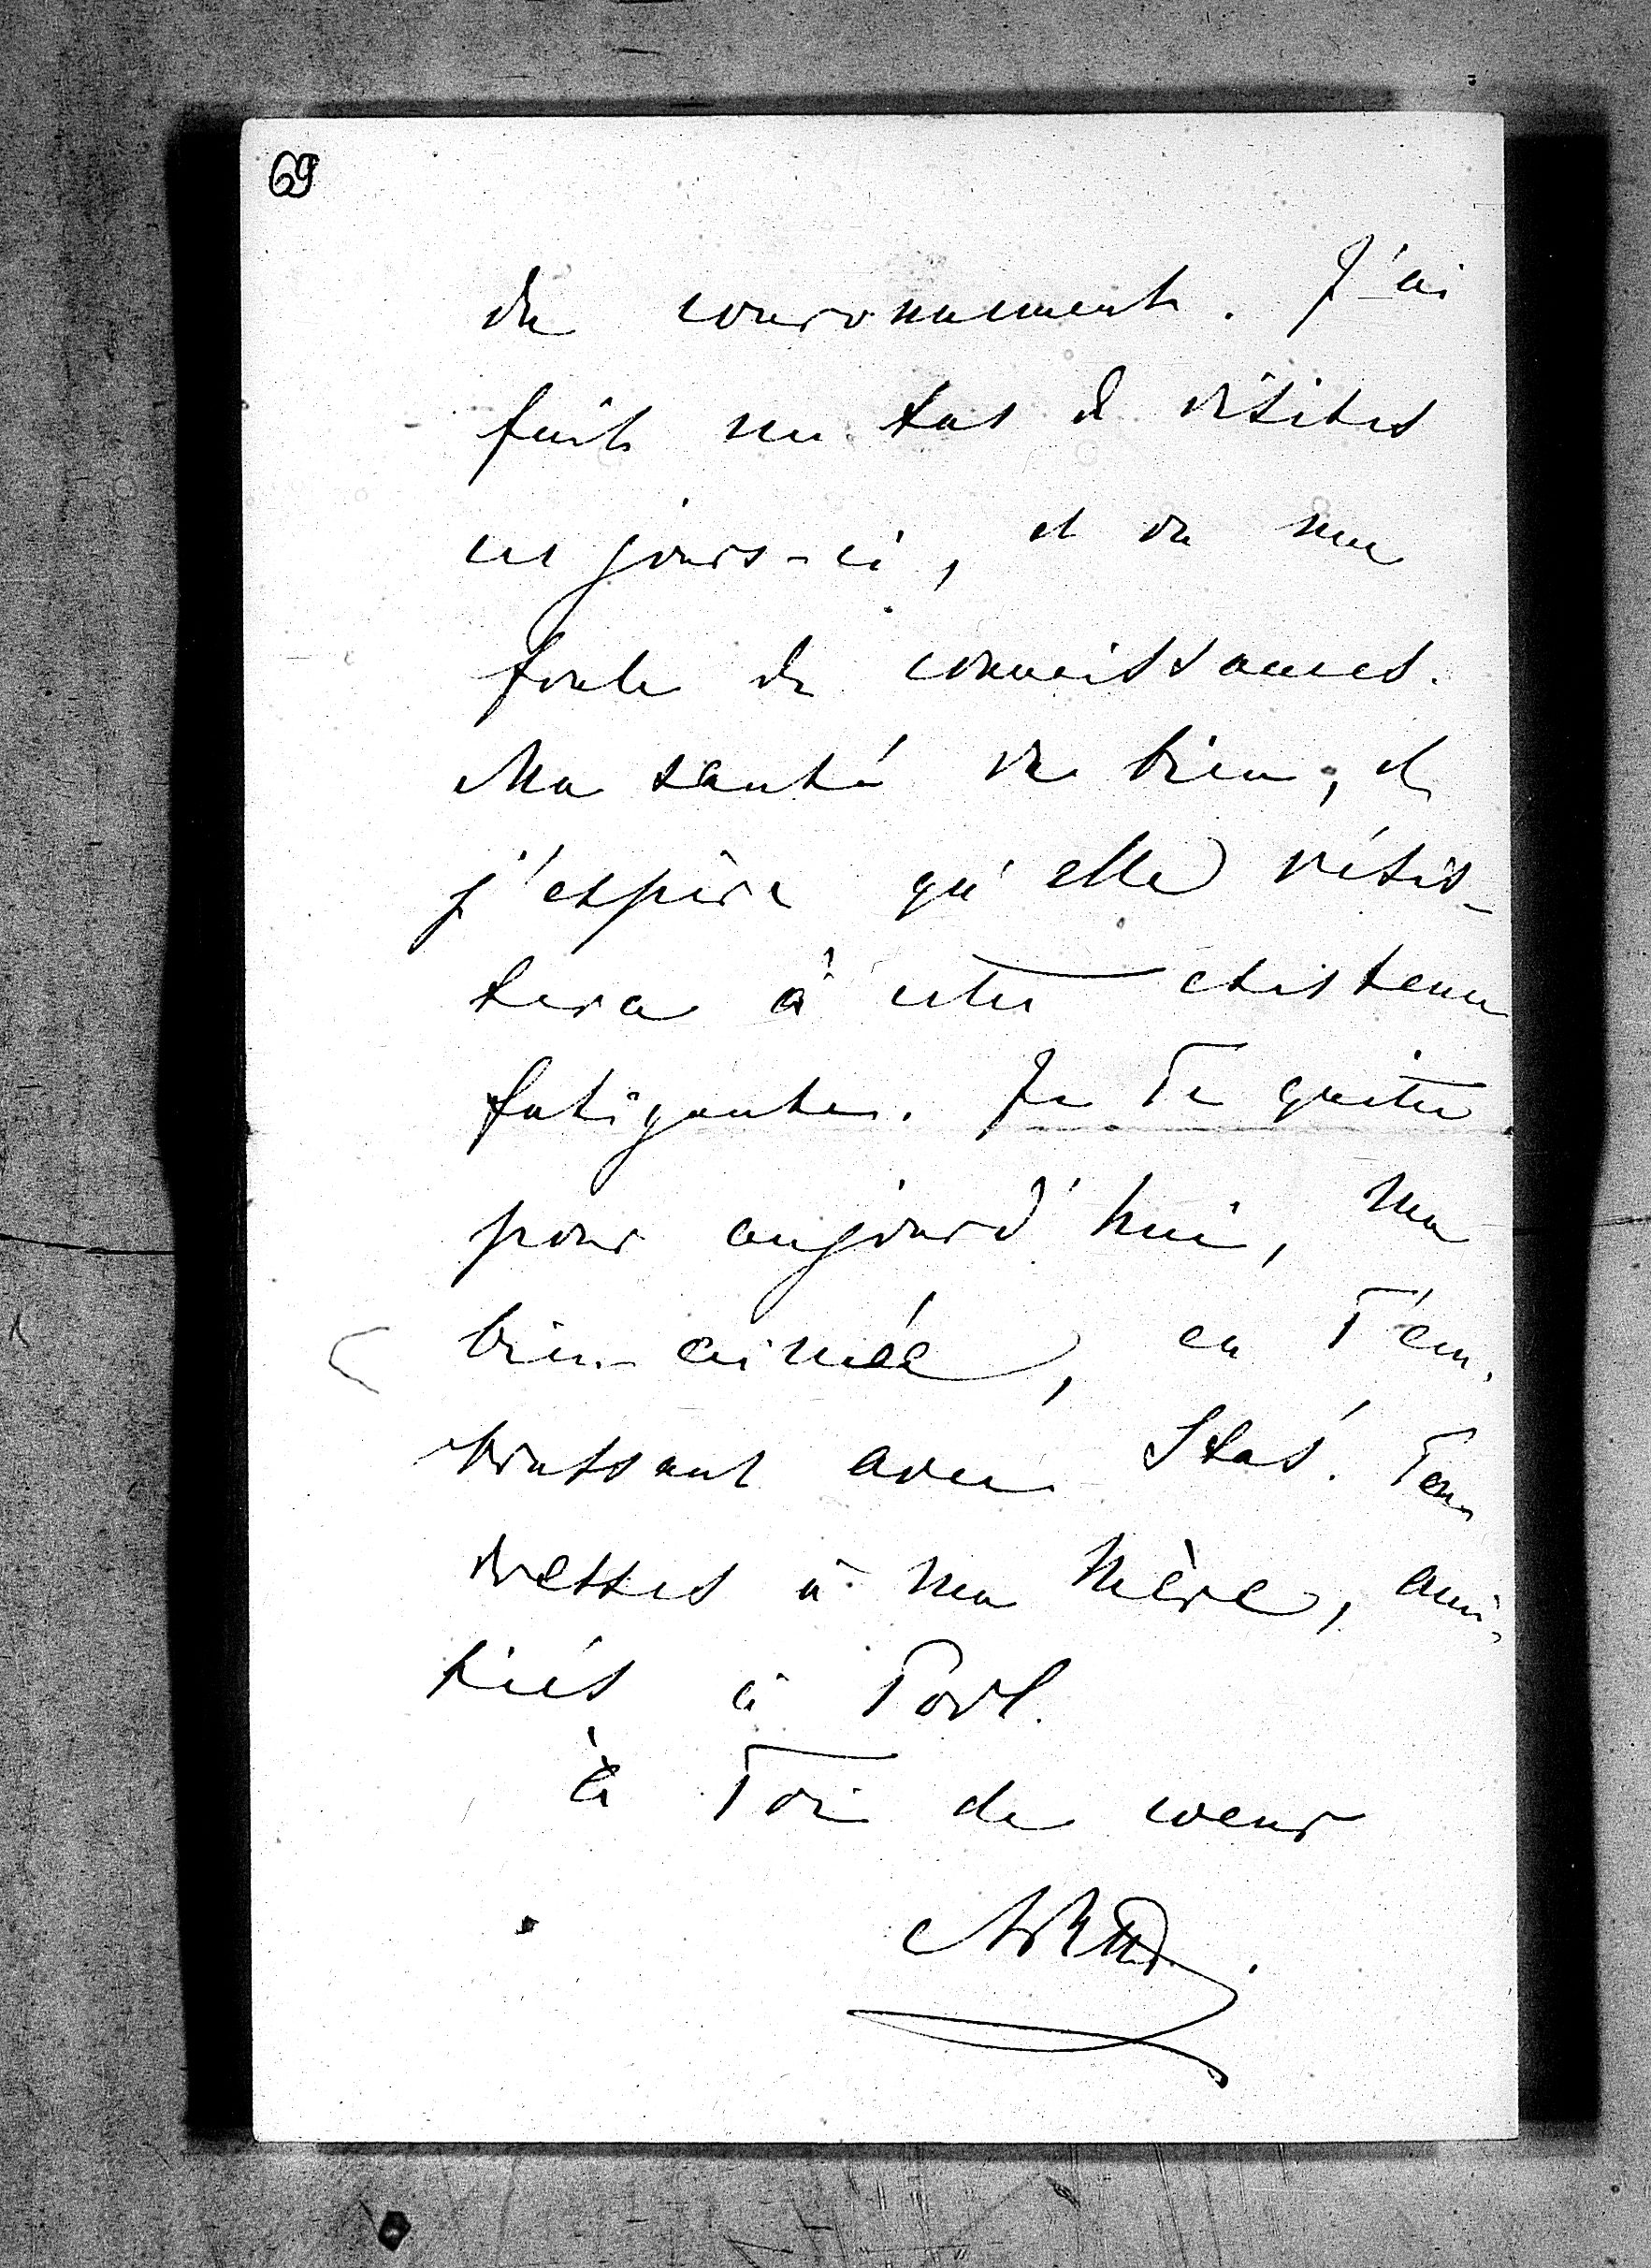 69
du couronnement. J'ai
fait un tas de visites
ces jours-ci, et vu une
foule de connaissances.
Ma santé va bien, et
j'espère qu'elle résis-
tera à cette existence
fatigante. Je Te quitte
pour aujourd'hui, ma
bien-aimée, en T'em-
brassant avec Stas. Ten-
dresses à ma mère, ami-
tiés à
à Toi de coeur